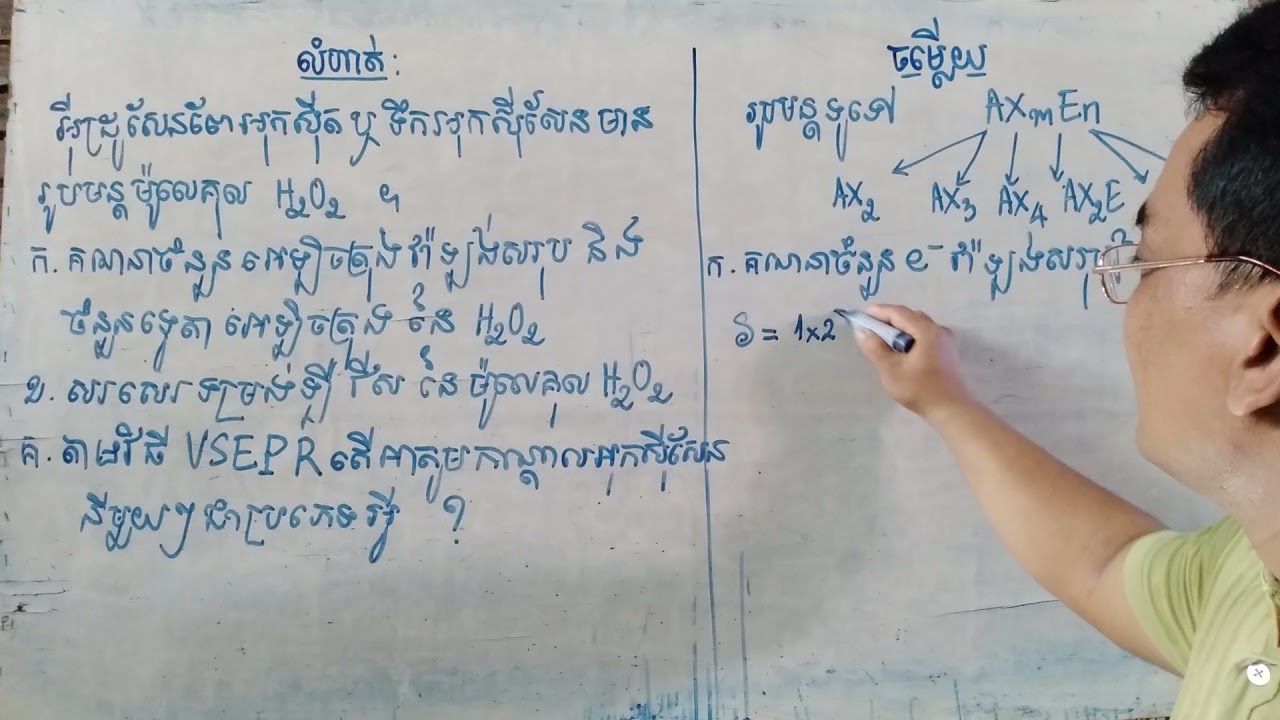 លំហាត់ :
អ៊ីដ្រូសែនពែរអុកស៊ីត ឬ ទឹកអុកស៊ីសែន មាន
រូបមន្តម៉ូលេគុល H₂O₂ ។
ក. គណនាចំនួនអេឡិចត្រុងវ៉ាឡង់សរុប និង
ចំនួនទ្វេតាអេឡិចត្រុង នៃ H₂O₂
ខ. សរសេរទម្រង់ឡឺវីស នៃម៉ូលេគុល H₂O₂
គ. តាមវិធី VSEPR តើអាតូមកណ្តាលអុកស៊ីសែន
នីមួយៗជាប្រភេទអ្វី ?
ចម្លើយ
រូបមន្តទូទៅ AXmEn
AX₂ AX₃ AX₄ AX₂E
ក. គណនាចំនួន e⁻ វ៉ាឡង់សរុប
S = 1x2